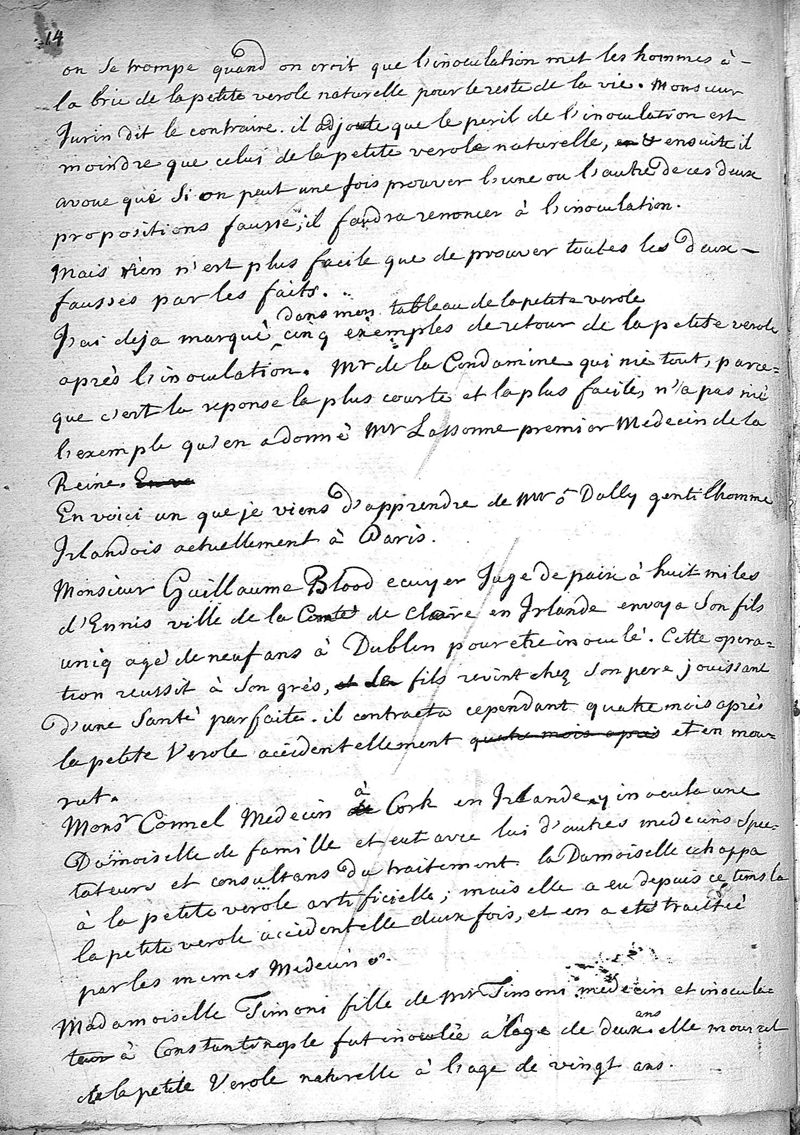 14
on se trompe quand on croit que l'inoculation met les hommes à
la brie de la petite verole naturelle pour le reste de la vie. Monsieur
Jurin dit le contraire. il adjoute que le peril de l'inoculation est
moindre que celui de la petite verole naturelle, ensuite il
avoue que si on peut une fois prouver l'une ou l'autre de ces deux
propositions fausse, il faudra renoncer à l'inoculation.
Mais rien n'est plus facile que de prouver toutes les deux
fausses par les faits.
dans mon tableau de la petite verole
J'ai deja marqué cinq exemples de retour de la petite verole
après l'inoculation. Mr de la Condamine qui nie tout, parce-
que c'est la reponse la plus courte et la plus facile, n'a pas nié
l'exemple qu'en a donné Mr Lassonne premier Medecin de la
Reine.
En voici un que je viens d'apprendre de Mr ô Dally gentilhomme
Irlandois actuellement à Paris.
Monsieur Guillaume Blood ecuyer Juge de paix à huit miles
d'Ennis ville de la Comté de Clare en Irlande envoya son fils
uniq agé de neuf ans à Dublin pour etre inoculé. Cette opera-
tion reussit à son grés, et le fils revint chez son pere jouissant
d'une santé parfaite. il contracta cependant quatre mois après
la petite Verole accidentellement quatre mois après et en mou-
rut.
Monsr Connel Medecin à Cork en Irlande y inocula une
Damoiselle de famille et eut avec lui d'autres medecins spec-
tateurs et consultans du traitement la Damoiselle echappa
à la petite verole artificielle; mais elle a eu depuis ce tems la
la petite verole accidentelle deux fois, et en a eté traittée
par les memes Medecins.
Madamoiselle Timoni fille de Mr Timoni medecin et inocula-
teur à Constantinople fut inoculée a l'age de deux ans elle mourut
de la petite Verole naturelle à l'age de vingt ans.